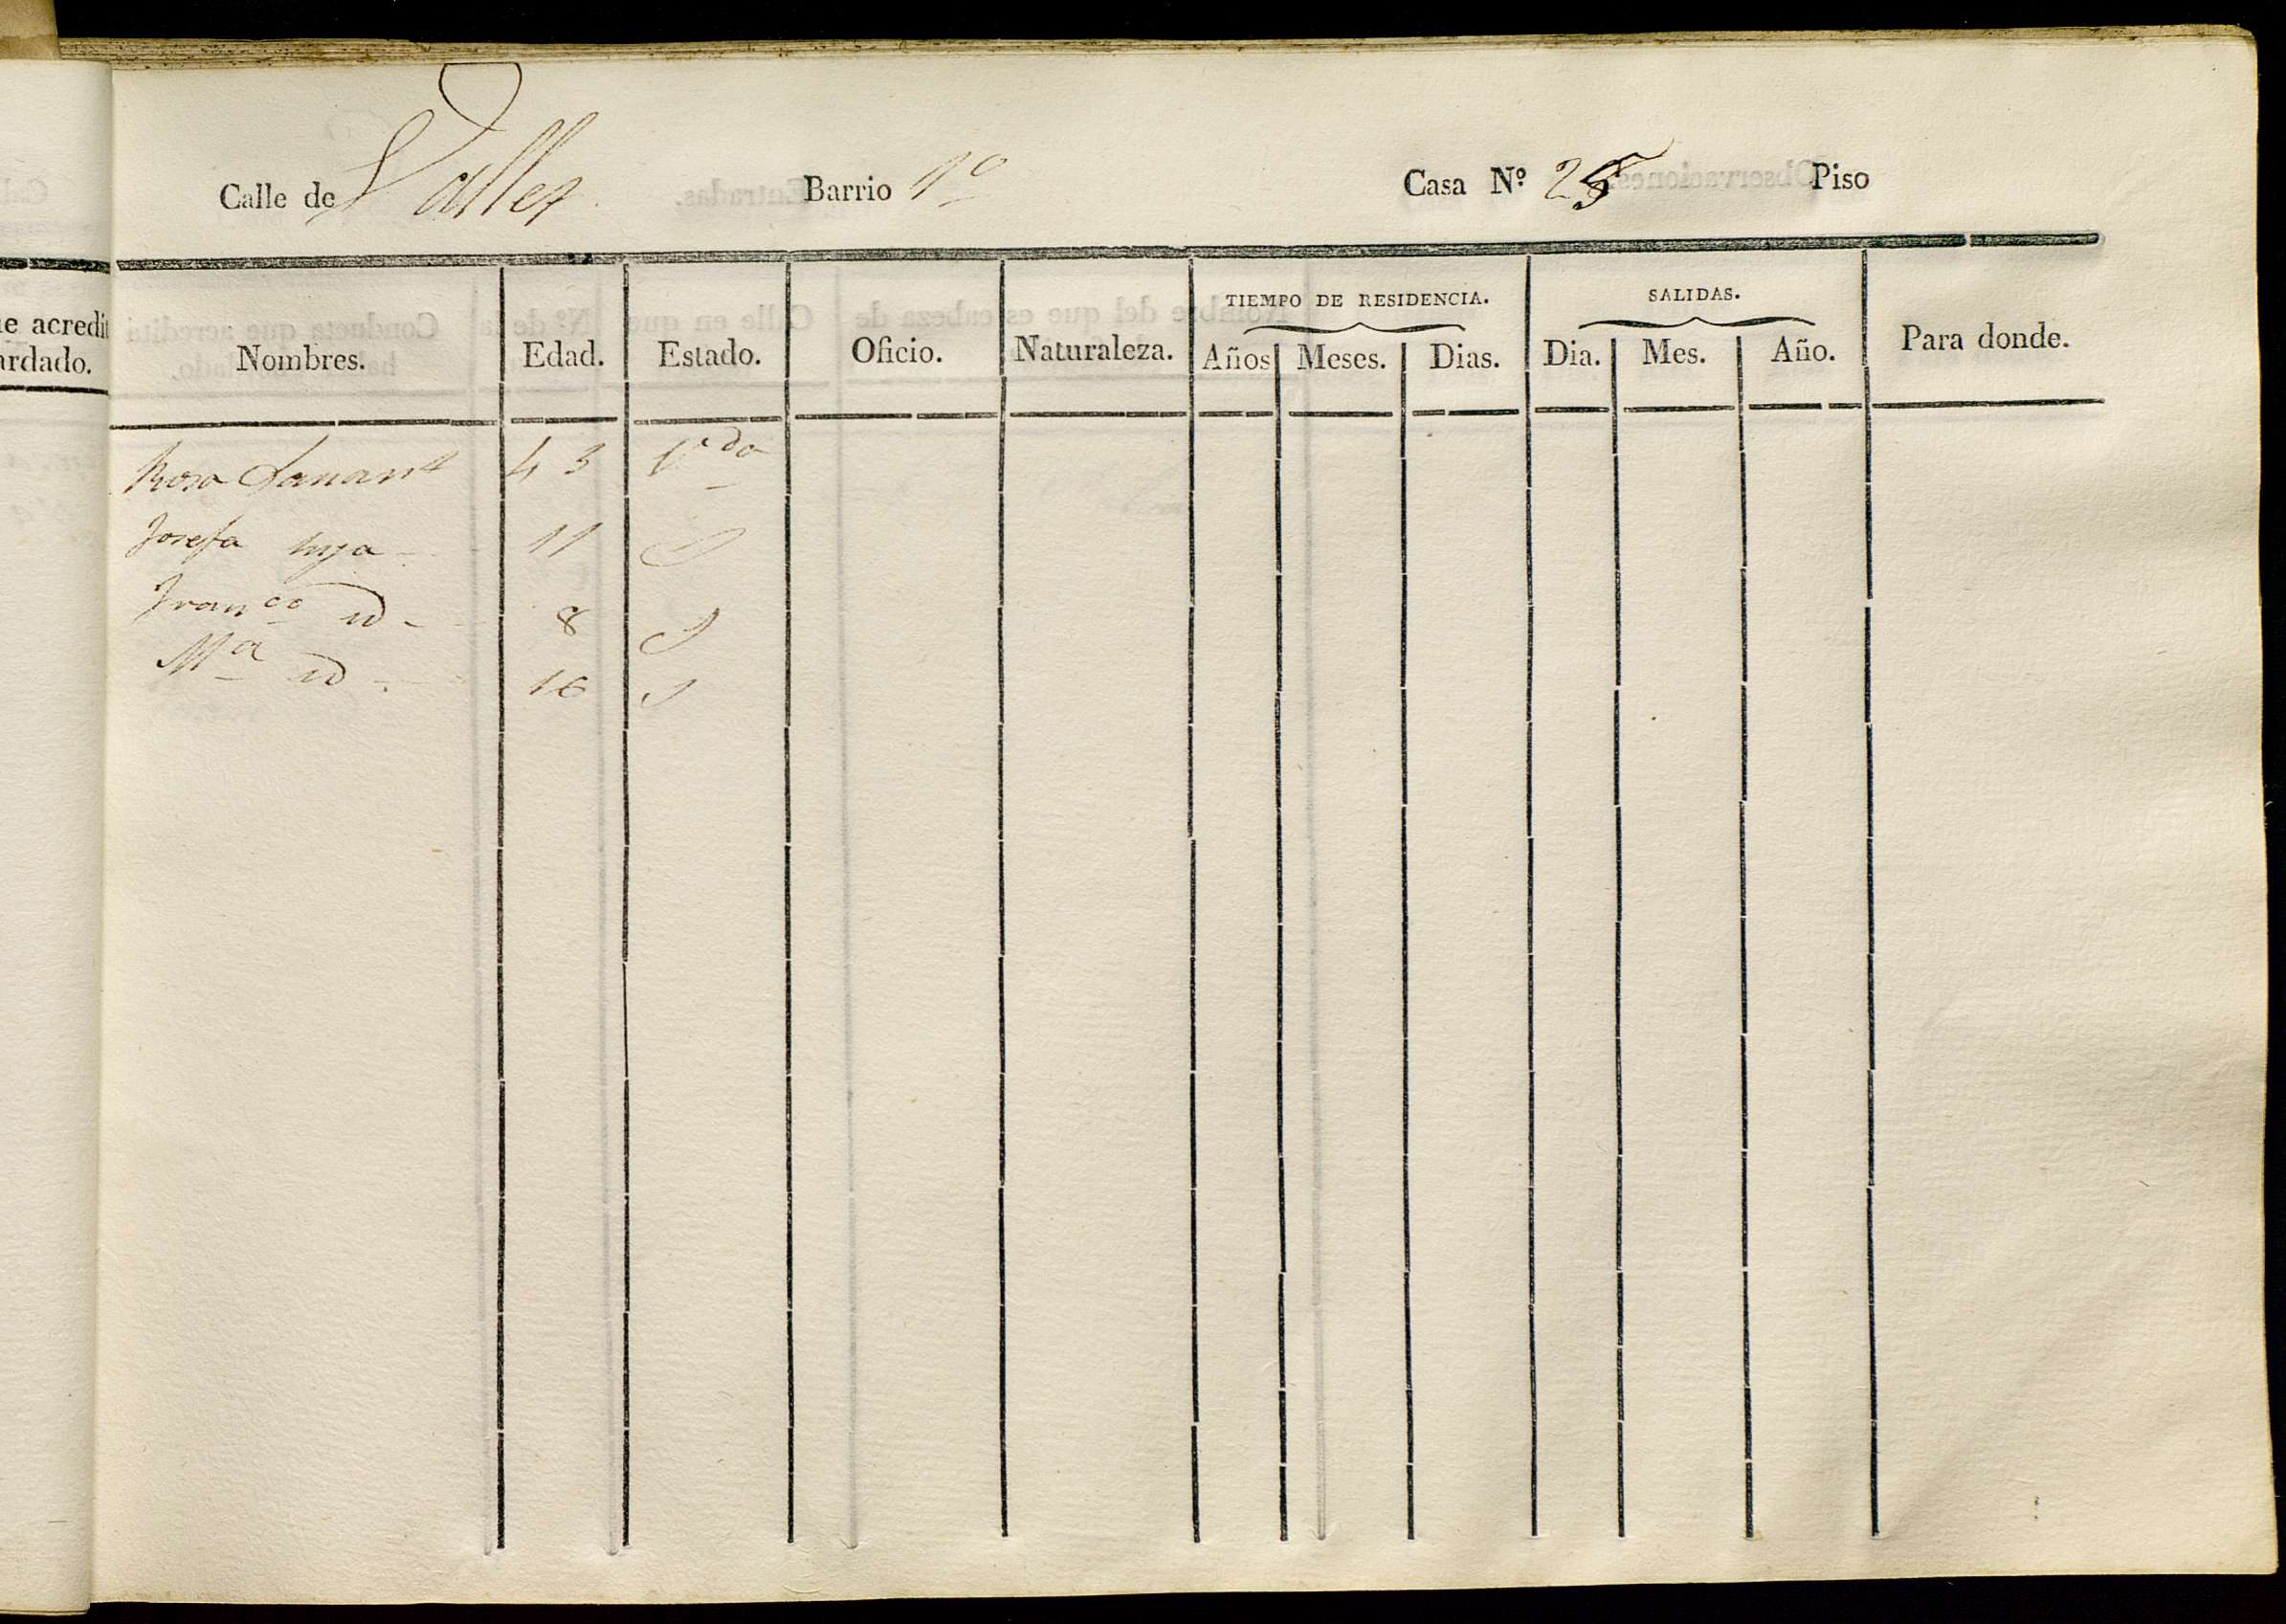 Calle de Valles Barrio 1º Casa Nº 25 Piso
TIEMPO DE RESIDENCIA. SALIDAS.
Nombres. Edad. Estado. Oficio. Naturaleza. Años Meses. Dias. Dia. Mes. Año. Para donde.
Rosa 43 Vda
Josefa hija 11 S
Franco id 8 S
Mª id 16 S
ue acredit
ardado.